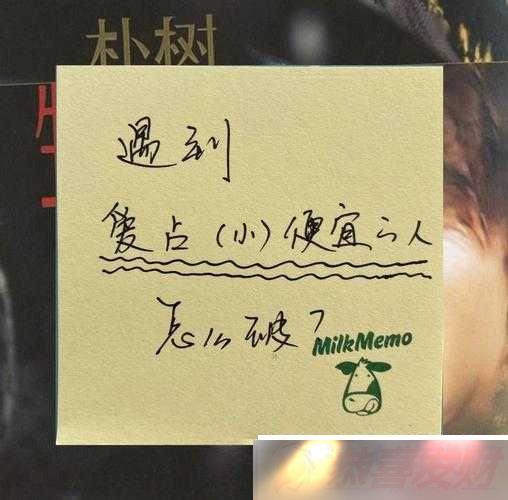 朴树
遇到
爱占（小）便宜的人
怎么破？
MilkMemo
恭喜发财